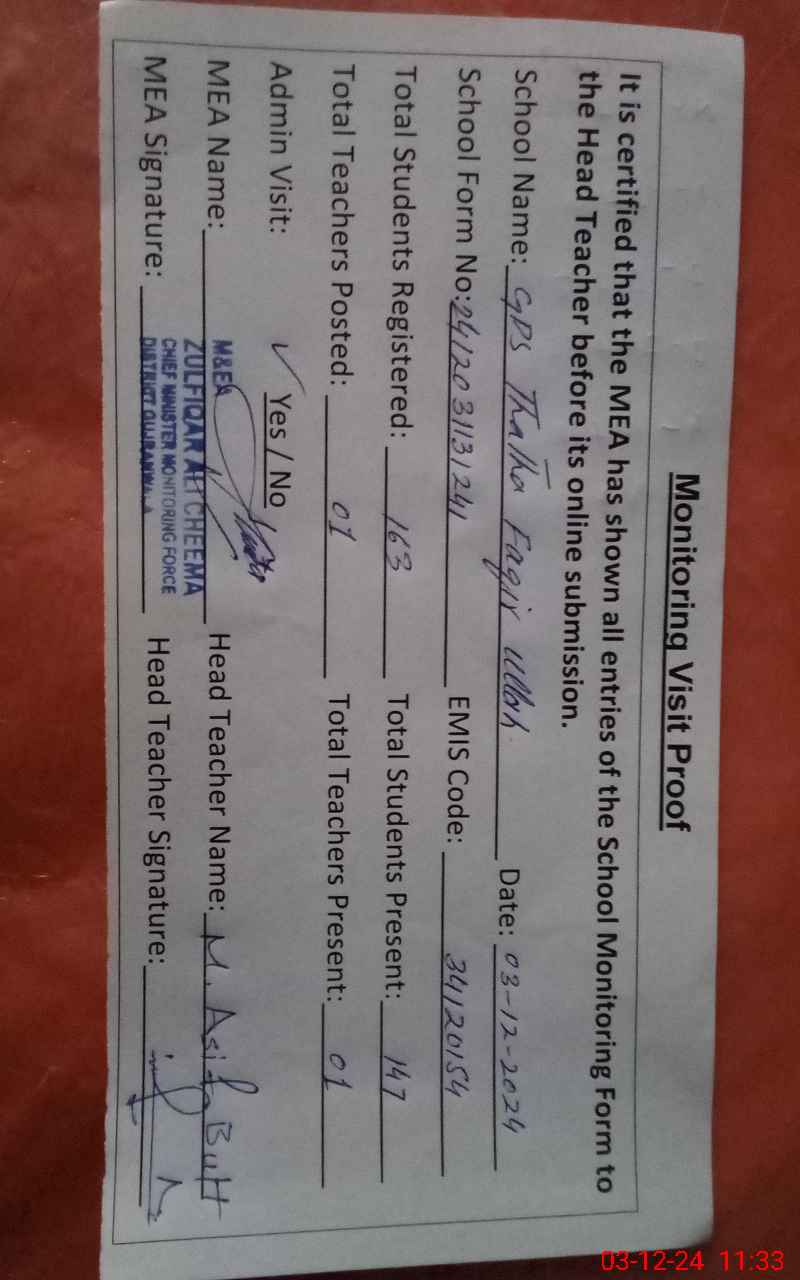 Monitoring Visit Proof
It is certified that the MEA has shown all entries of the School Monitoring Form to
the Head Teacher before its online submission.
School Name: GPS Thatha Faqir Ullah Date: 03-12-2024
School Form No: 2412031131241 EMIS Code: 34120154
Total Students Registered: 163 Total Students Present: 147
Total Teachers Posted: 01 Total Teachers Present: 01
Admin Visit: ✓ Yes / No
MEA Name: Head Teacher Name: M. Asif Butt
M&EA
ZULFIQAR ALI CHEEMA
CHIEF MINISTER MONITORING FORCE
DISTRICT GUJRANWALA
MEA Signature: Head Teacher Signature:
03-12-24 11:33